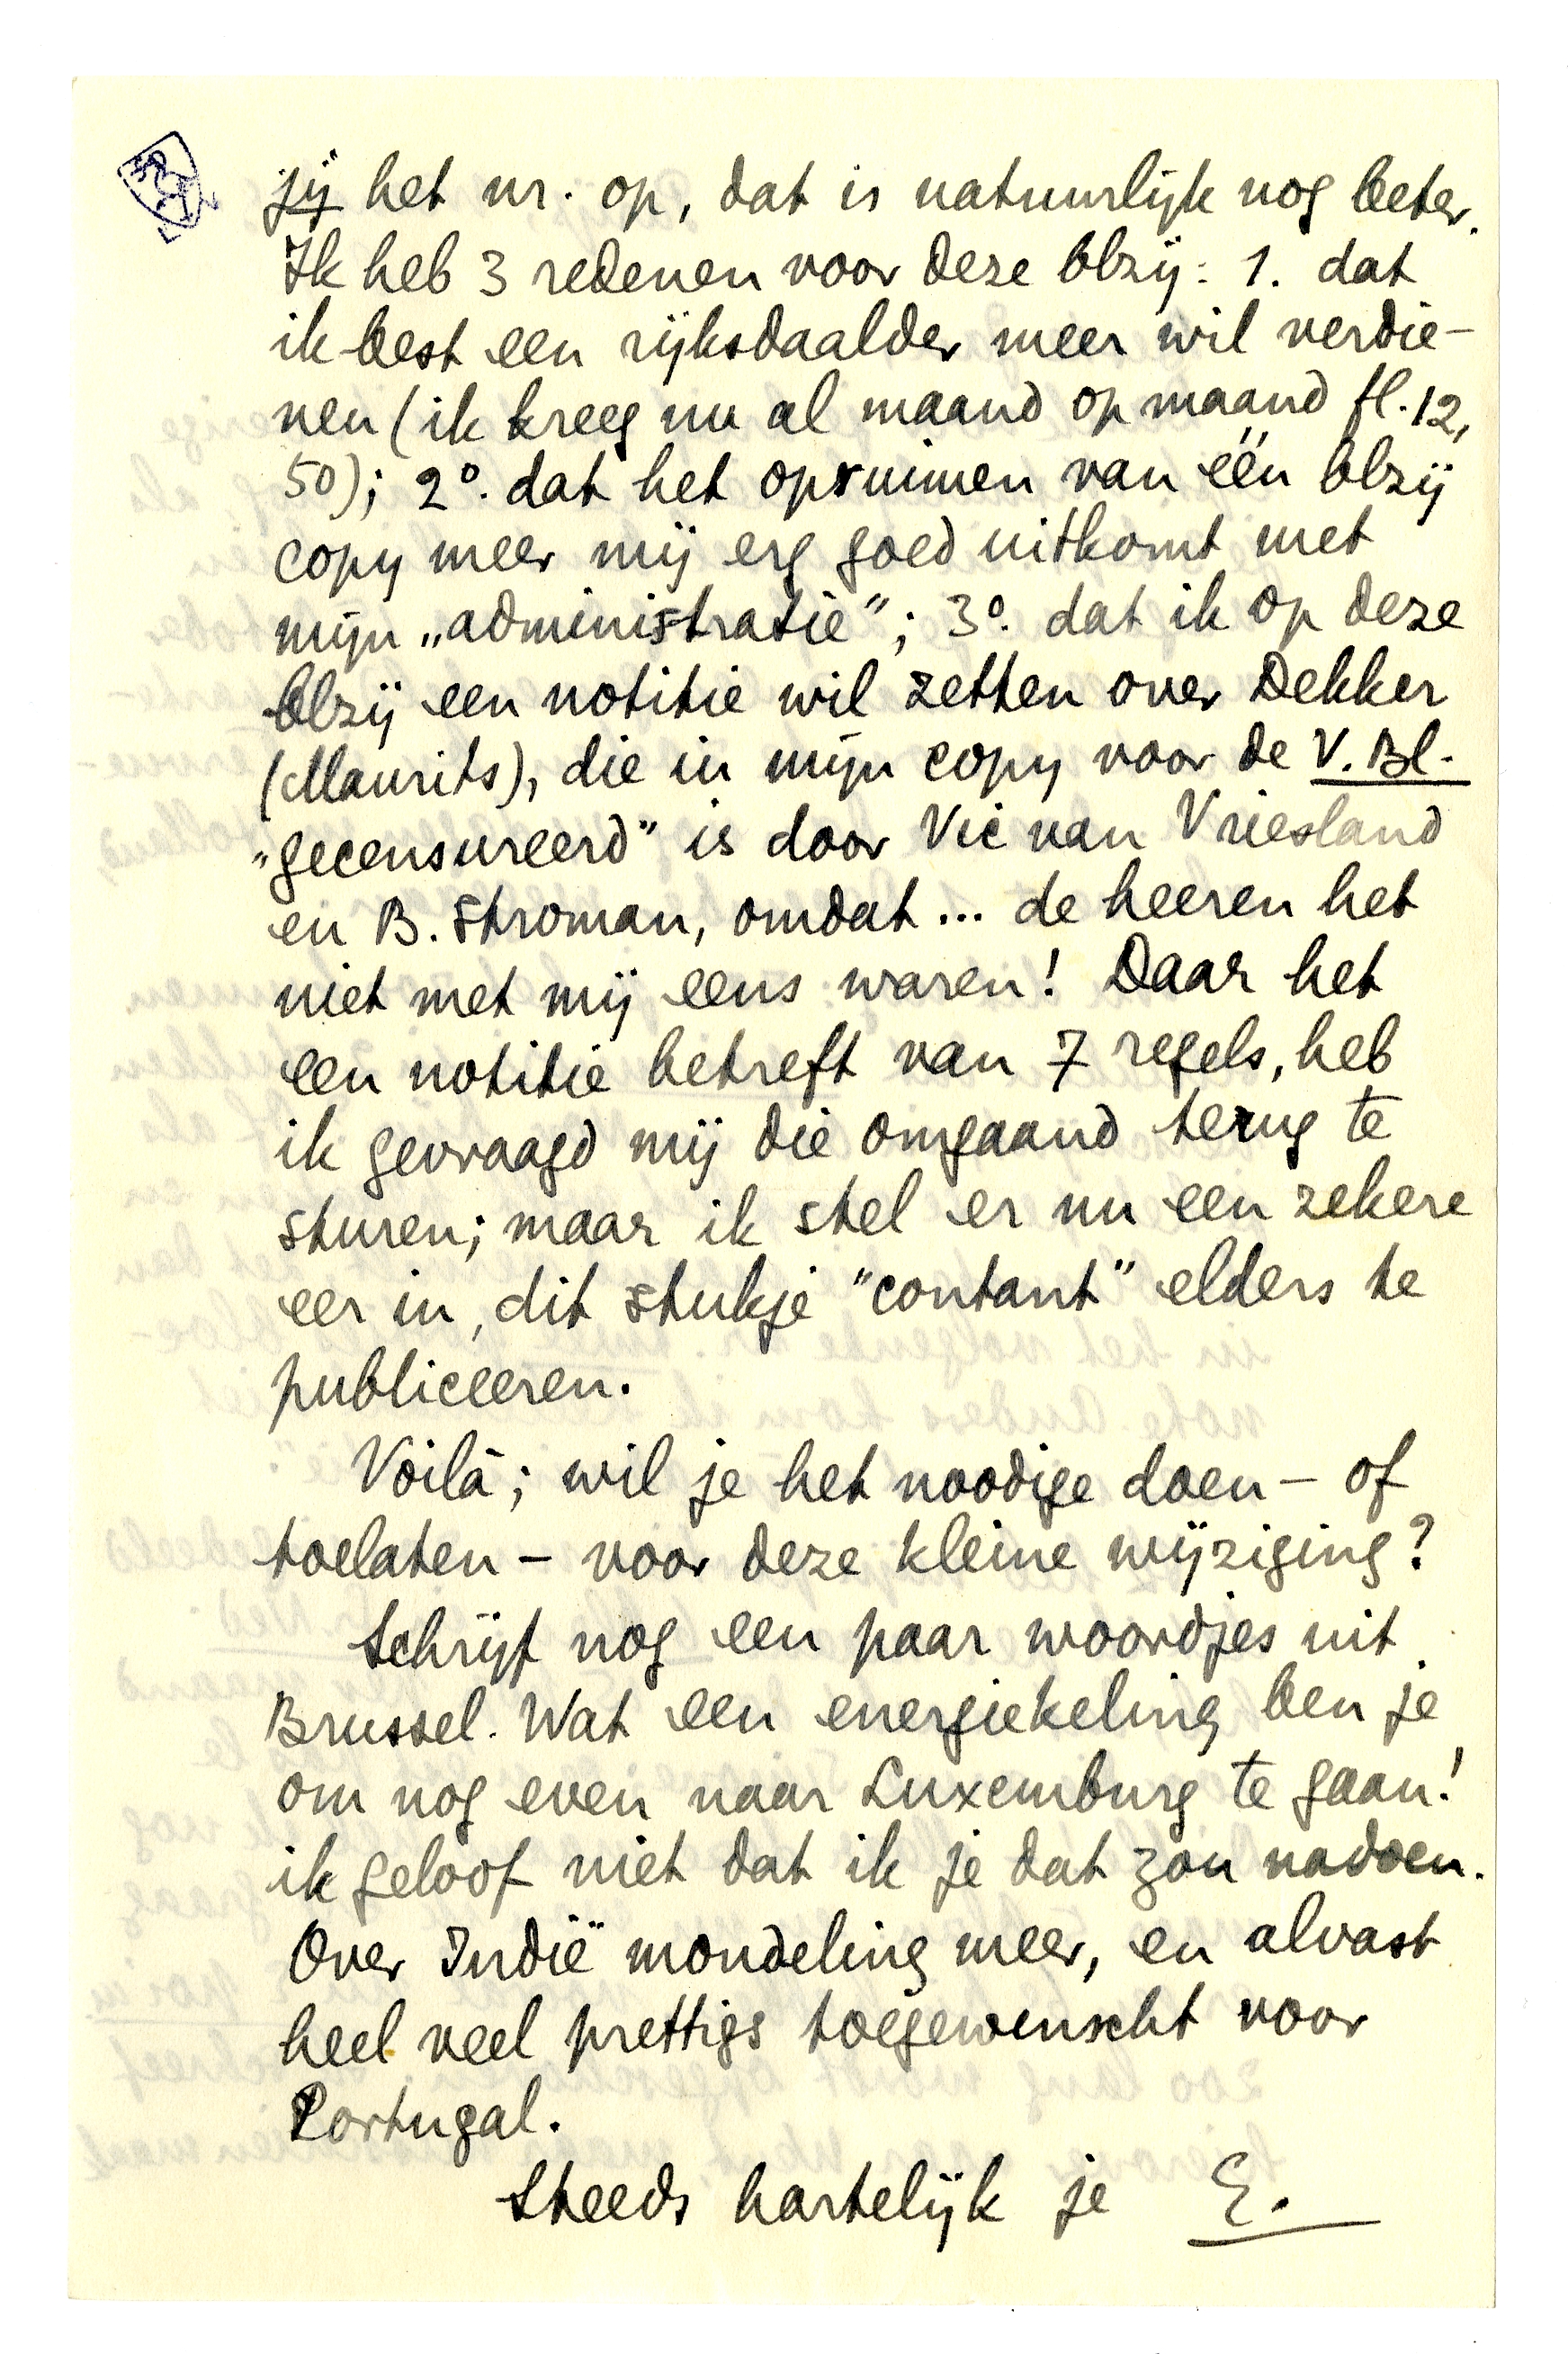 jij het nr. op, dat is natuurlijk nog beter.
Ik heb 3 redenen voor deze blzij: 1. dat
ik best een rijksdaalder meer wil verdie-
nen (ik kreeg nu al maand op maand fl. 12,
50); 2º. dat het opruimen van één blzij
copy meer mij erg goed uitkomt met
mijn „administratie”; 3º. dat ik op deze
blzij een notitie wil zetten over Dekker
(Maurits), die in mijn copy voor de V. Bl.
„gecensureerd” is door Vic van Vriesland
en B. Stroman, omdat... de heeren het
niet met mij eens waren! Daar het
een notitie betreft van 7 regels, heb
ik gevraagd mij die omgaand terug te
sturen; maar ik stel er nu een zekere
eer in, dit stukje "contant" elders te
publiceeren.
Voilà; wil je het noodige doen — of
toelaten — voor deze kleine wijziging?
Schrijf nog een paar woordjes uit
Brussel. Wat een energiekeling ben je
om nog even naar Luxemburg te gaan!
ik geloof niet dat ik je dat zou nadoen.
Over Indië mondeling meer, en alvast
heel veel prettigs toegewenscht voor
Portugal.
Steeds hartelijk je E.